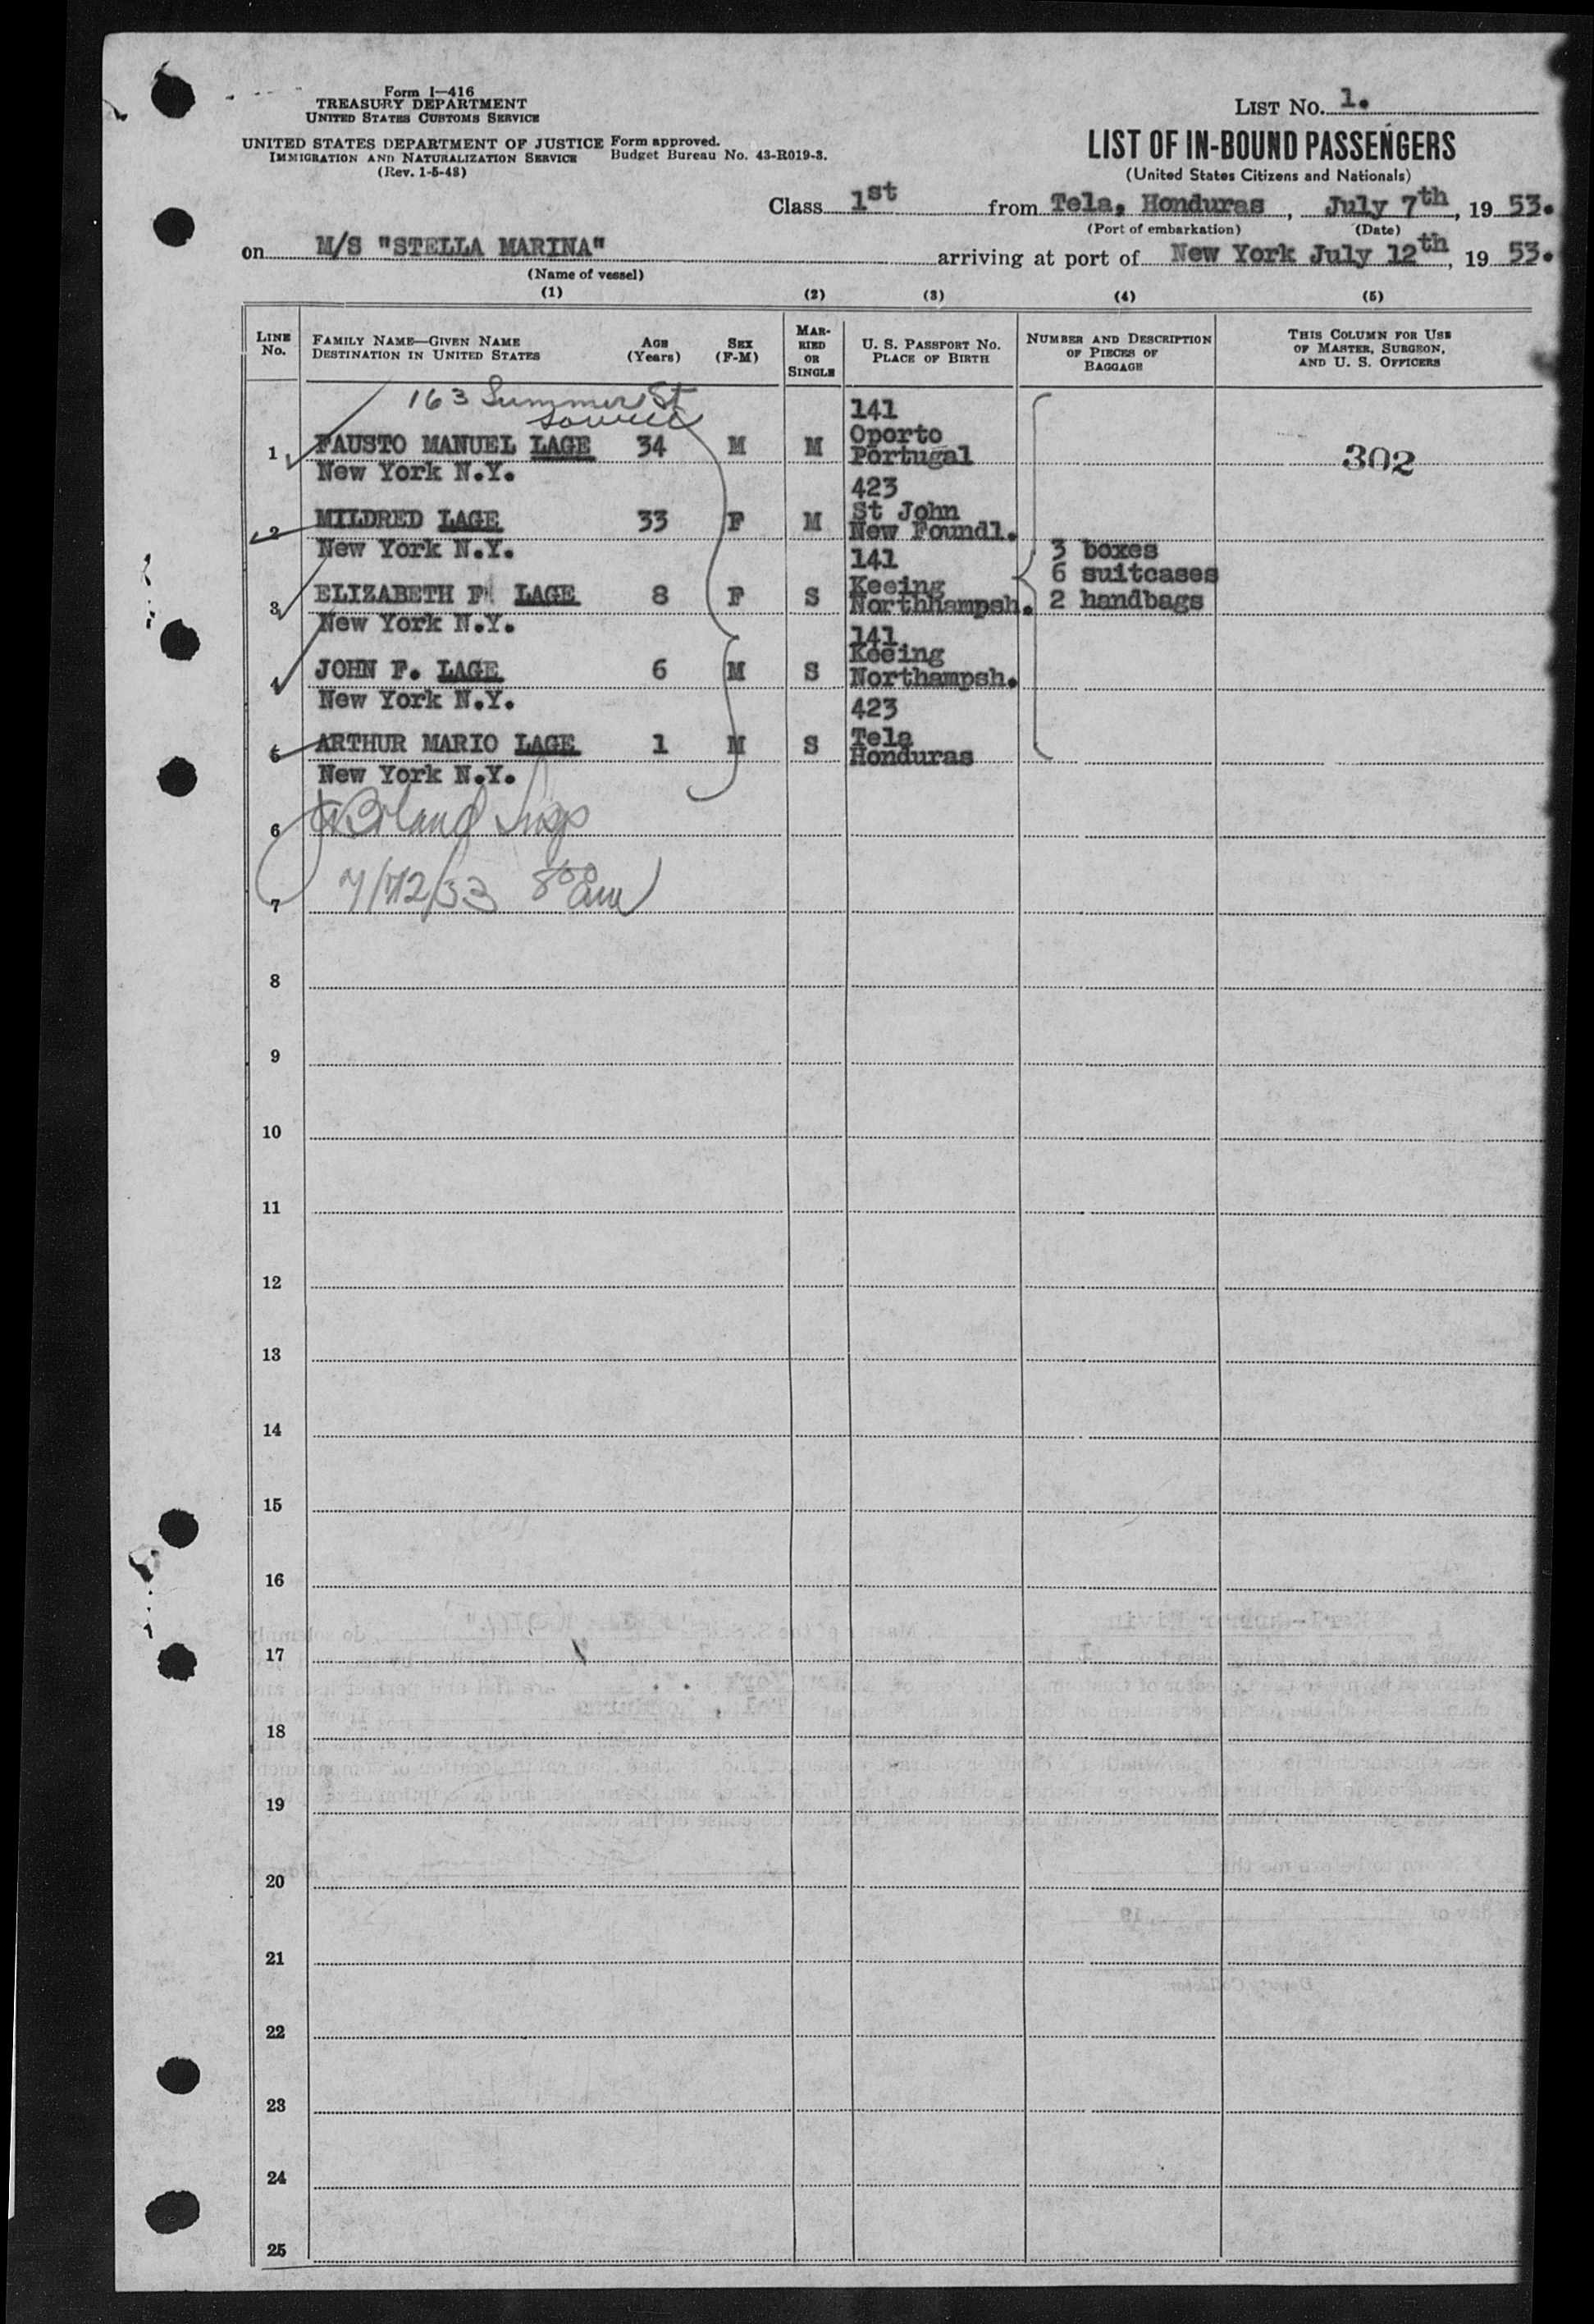 Form I-416
TREASURY DEPARTMENT
UNITED STATES CUSTOMS SERVICE
UNITED STATES DEPARTMENT OF JUSTICE
IMMIGRATION AND NATURALIZATION SERVICE
(Rev. 1-5-48)
Form approved.
Budget Bureau No. 43-R019-3.
LIST No. 1.
LIST OF IN-BOUND PASSENGERS
(United States Citizens and Nationals)
Class 1st from Tela, Honduras, July 7th, 1953.
(Port of embarkation) (Date)
on M/S "STELLA MARINA" arriving at port of New York July 12th, 1953.
(Name of vessel)
(1) (2) (3) (4) (5)
LINE No.
FAMILY NAME—GIVEN NAME
DESTINATION IN UNITED STATES
AGE (Years)
SEX (F-M)
MARRIED OR SINGLE
U. S. PASSPORT NO.
PLACE OF BIRTH
NUMBER AND DESCRIPTION OF PIECES OF BAGGAGE
THIS COLUMN FOR USE OF MASTER, SURGEON, AND U. S. OFFICERS
163 Summer St
141
1 FAUSTO MANUEL LAGE 34 M M Oporto Portugal 302
New York N.Y.
423
2 MILDRED LAGE 33 F M St John New Foundl.
New York N.Y.
141
3 ELIZABETH F LAGE 8 F S Keeing Northhampsh.
New York N.Y.
3 boxes
6 suitcases
2 handbags
141
4 JOHN F. LAGE 6 M S Keeing Northampsh.
New York N.Y.
423
5 ARTHUR MARIO LAGE 1 M S Tela Honduras
New York N.Y.
6
7 7/12/53 8:00 am
8
9
10
11
12
13
14
15
16
17
18
19
20
21
22
23
24
25